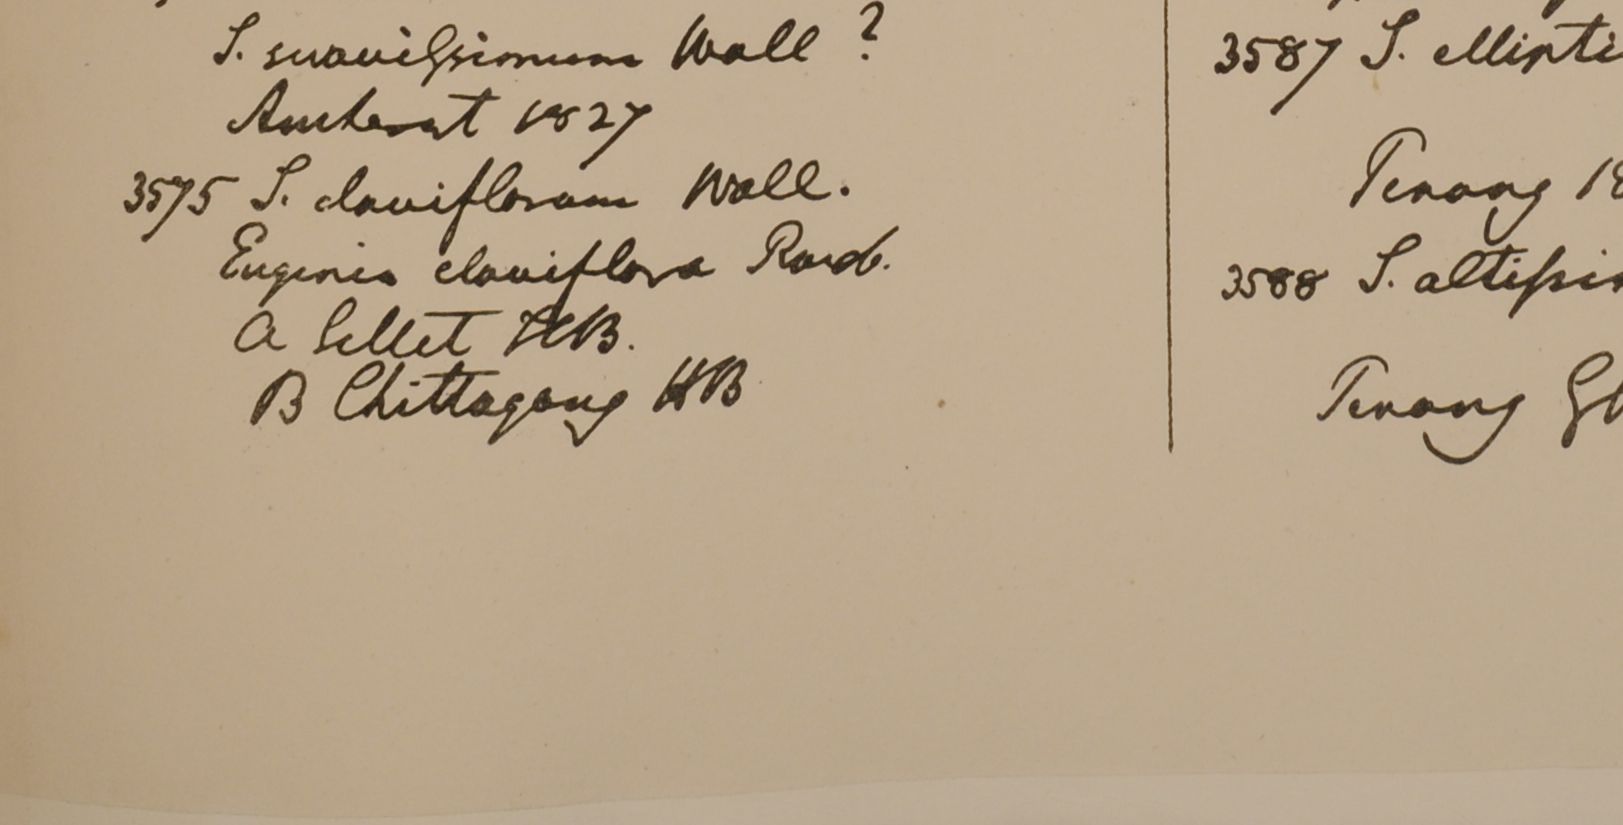 S. suavissimum Wall ?
Amherst 1827
3575 S. claviflorum Wall.
Eugenia claviflora Roxb.
a Sillet HB.
B Chittagong HB
3587 S. ellipti
Penang 18
3588 S. altissi
Penang